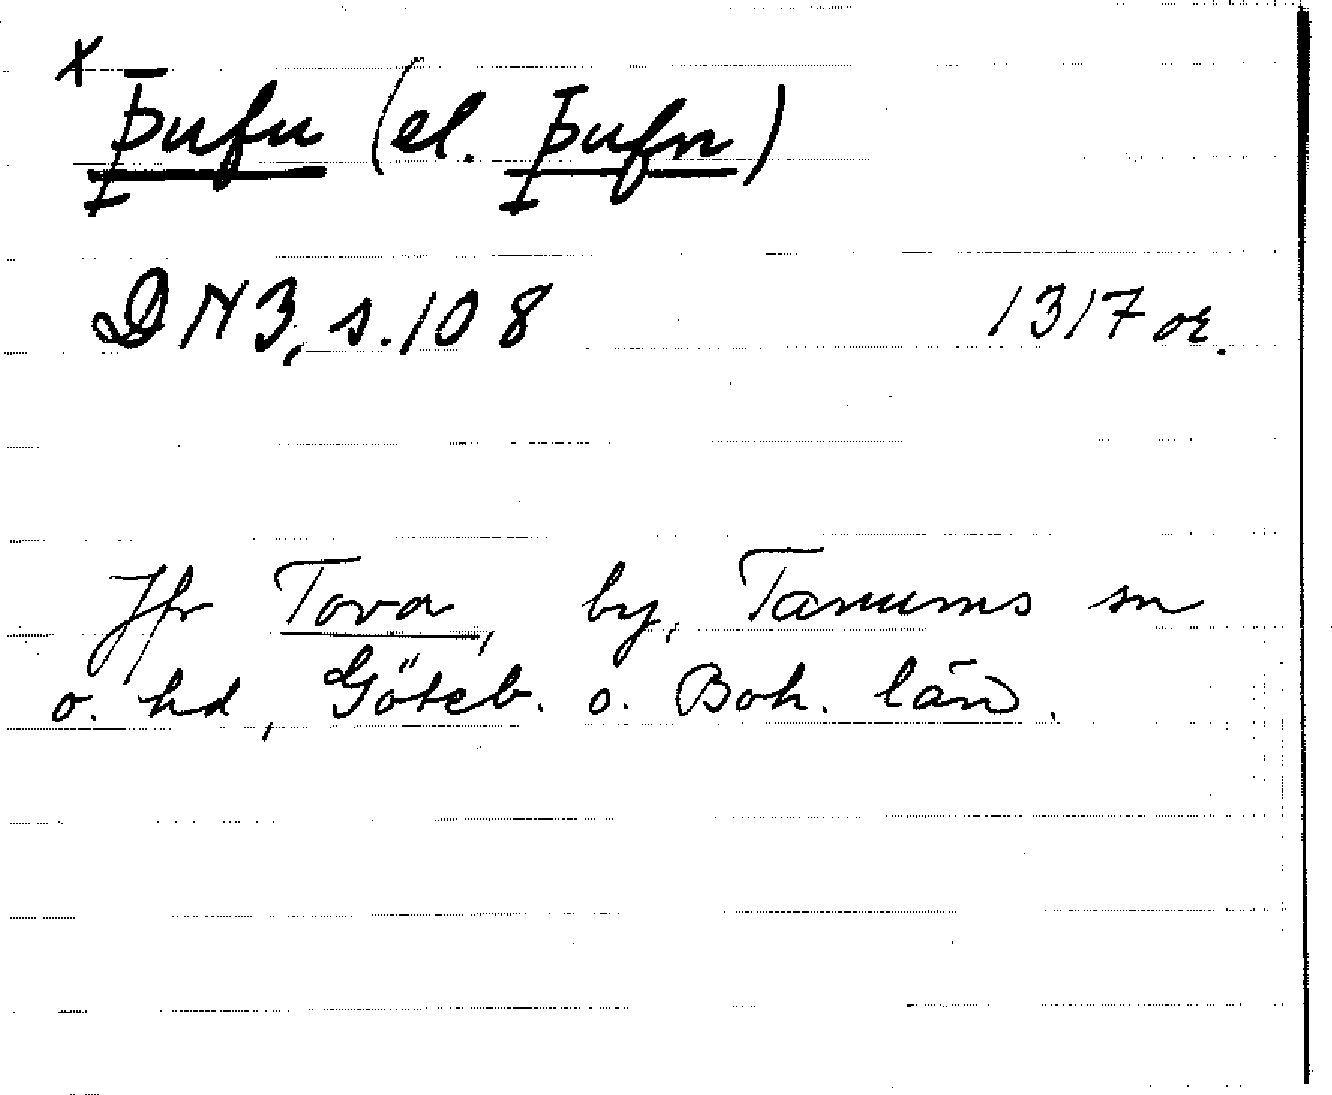 x Þufu (el. Þufn)
DN 3, s. 108 1317 or.
Jfr Tova, by, Tanums sn
o. hd, Göteb. o. Boh. län.